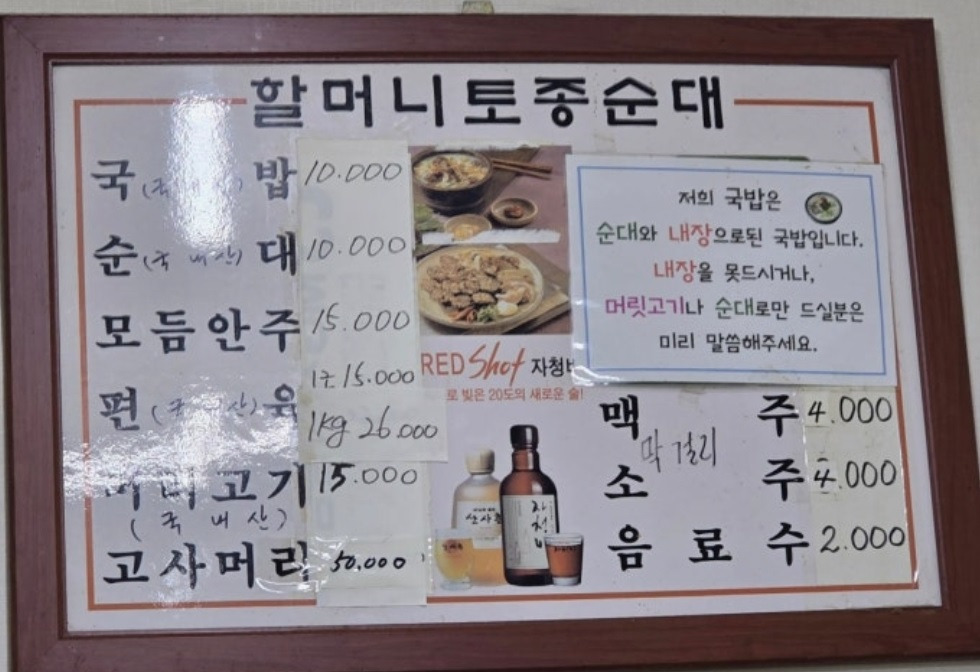 할머니토종순대
국(국내산)밥 10.000
순(국내산)대 10.000
모듬안주 15.000
편(국 산)육 1근 15.000
1kg 26.000
머리고기 15.000
(국내산)
고사머리 50.000
RED Shot 자청비
로 빚은 20도의 새로운 술!
산사춘
자청비
저희 국밥은
순대와 내장으로된 국밥입니다.
내장을 못드시거나,
머릿고기나 순대로만 드실분은
미리 말씀해주세요.
맥 주 4.000
막걸리
소 주 4.000
음 료 수 2.000